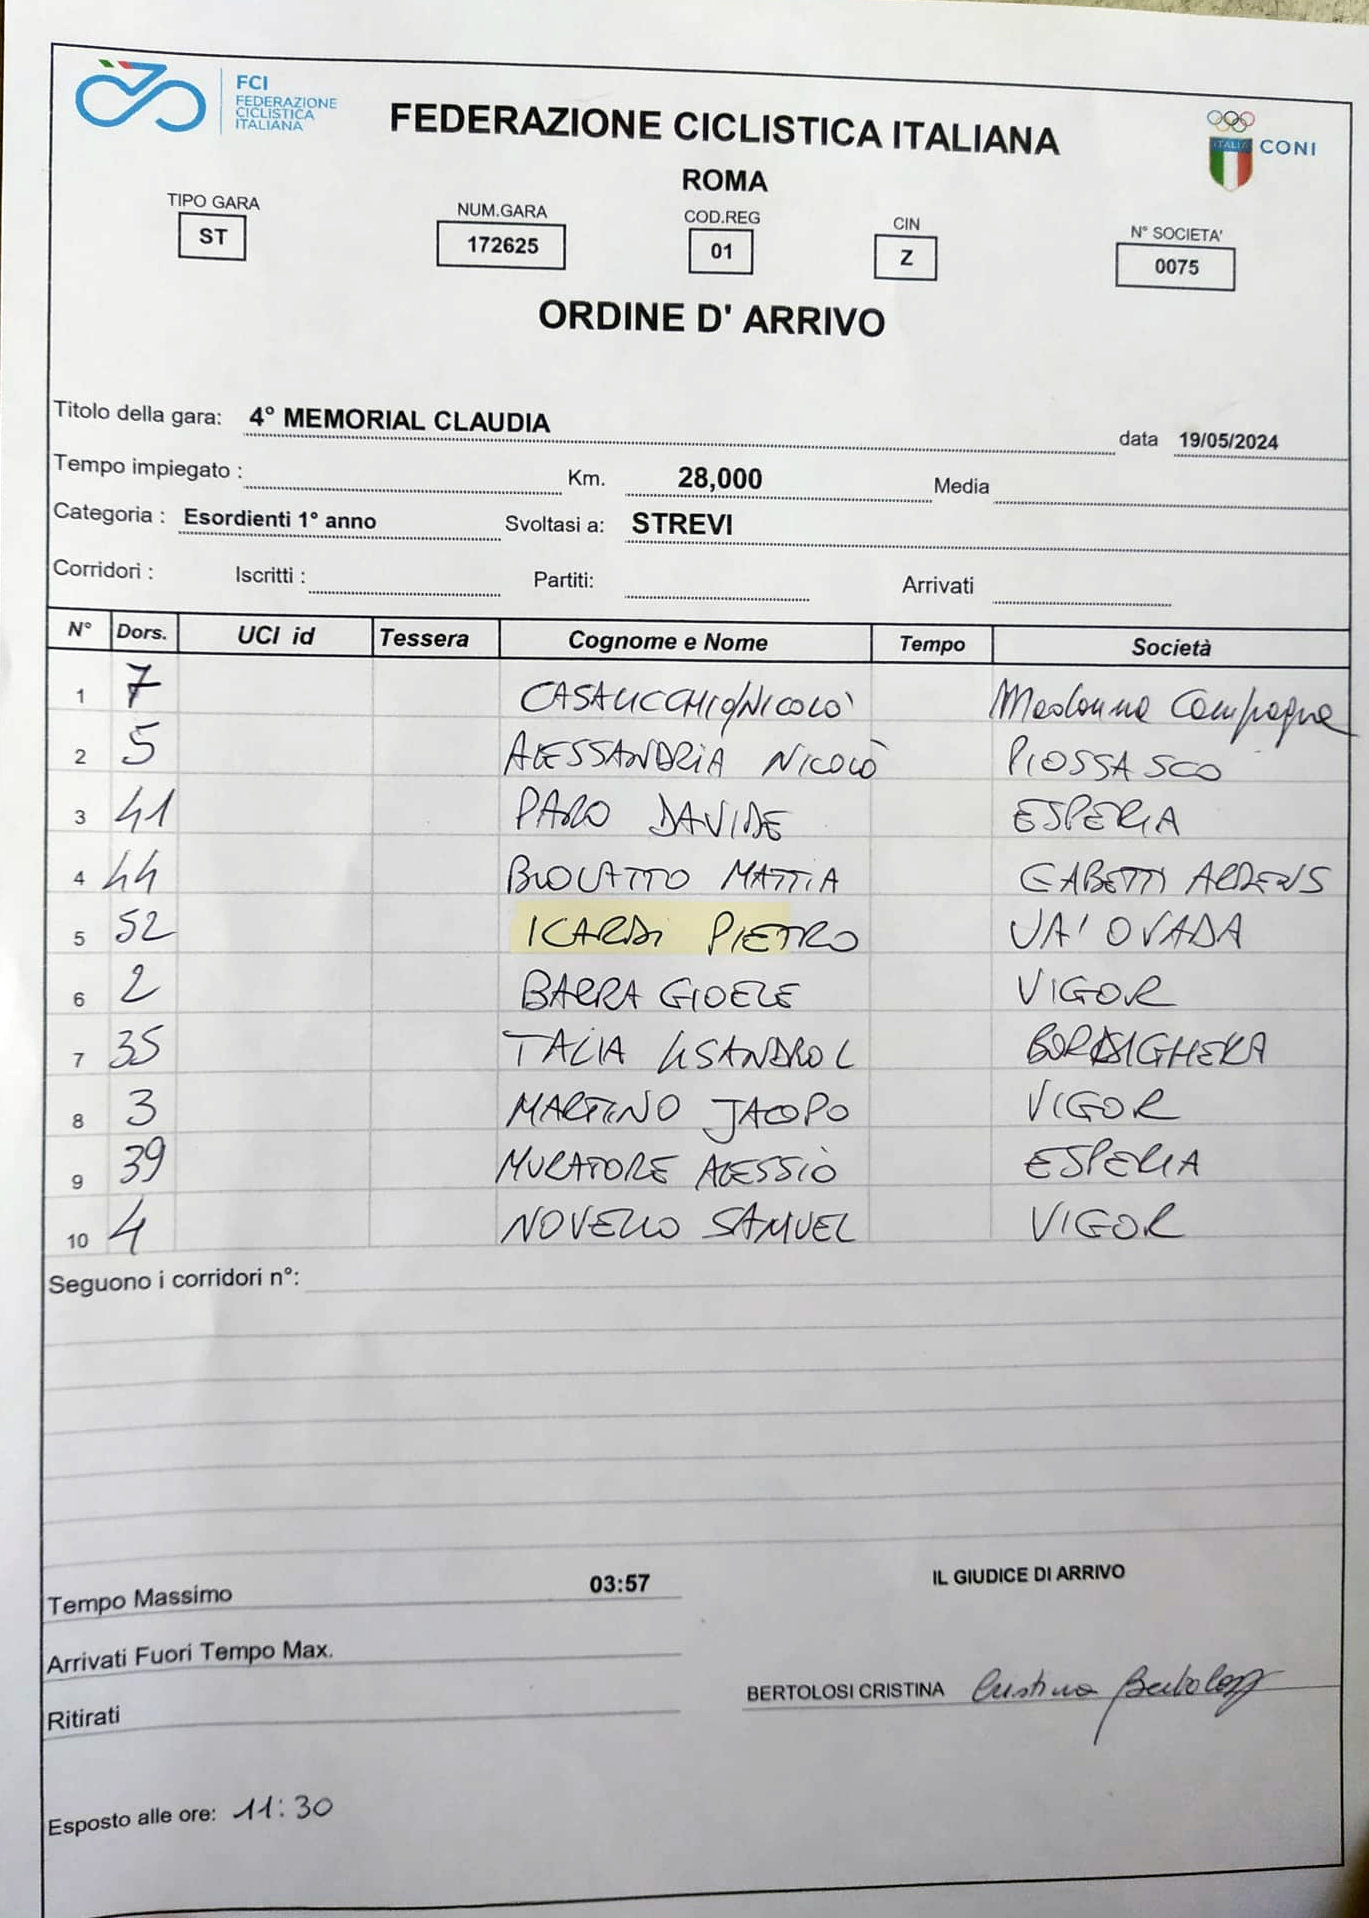 FCI
FEDERAZIONE
CICLISTICA
ITALIANA
FEDERAZIONE CICLISTICA ITALIANA
ITALIA
CONI
ROMA
TIPO GARA NUM.GARA COD.REG CIN N° SOCIETA'
ST 172625 01 Z 0075
ORDINE D' ARRIVO
Titolo della gara: 4° MEMORIAL CLAUDIA data 19/05/2024
Tempo impiegato : Km. 28,000 Media
Categoria : Esordienti 1° anno Svoltasi a: STREVI
Corridori : Iscritti : Partiti: Arrivati
N° Dors. UCI id Tessera Cognome e Nome Tempo Società
1 7 NICOLO' Madonna Campagna
2 5 ALESSANDRIA NICOLÒ PIOSSASCO
3 41 PARO DAVIDE ESPERIA
4 44 BIOLATTO MATTIA GABETTI ARDENS
5 52 ICARDI PIETRO UA' OVADA
6 2 BARRA GIOELE VIGOR
7 35 TALIA LISANDRO L BORDIGHERA
8 3 MARTINO JACOPO VIGOR
9 39 MURATORE ALESSIO ESPERIA
10 4 NOVELLO SAMUEL VIGOR
Seguono i corridori n°:
Tempo Massimo 03:57 IL GIUDICE DI ARRIVO
Arrivati Fuori Tempo Max.
BERTOLOSI CRISTINA Cristina Bertolosi
Ritirati
Esposto alle ore: 11:30